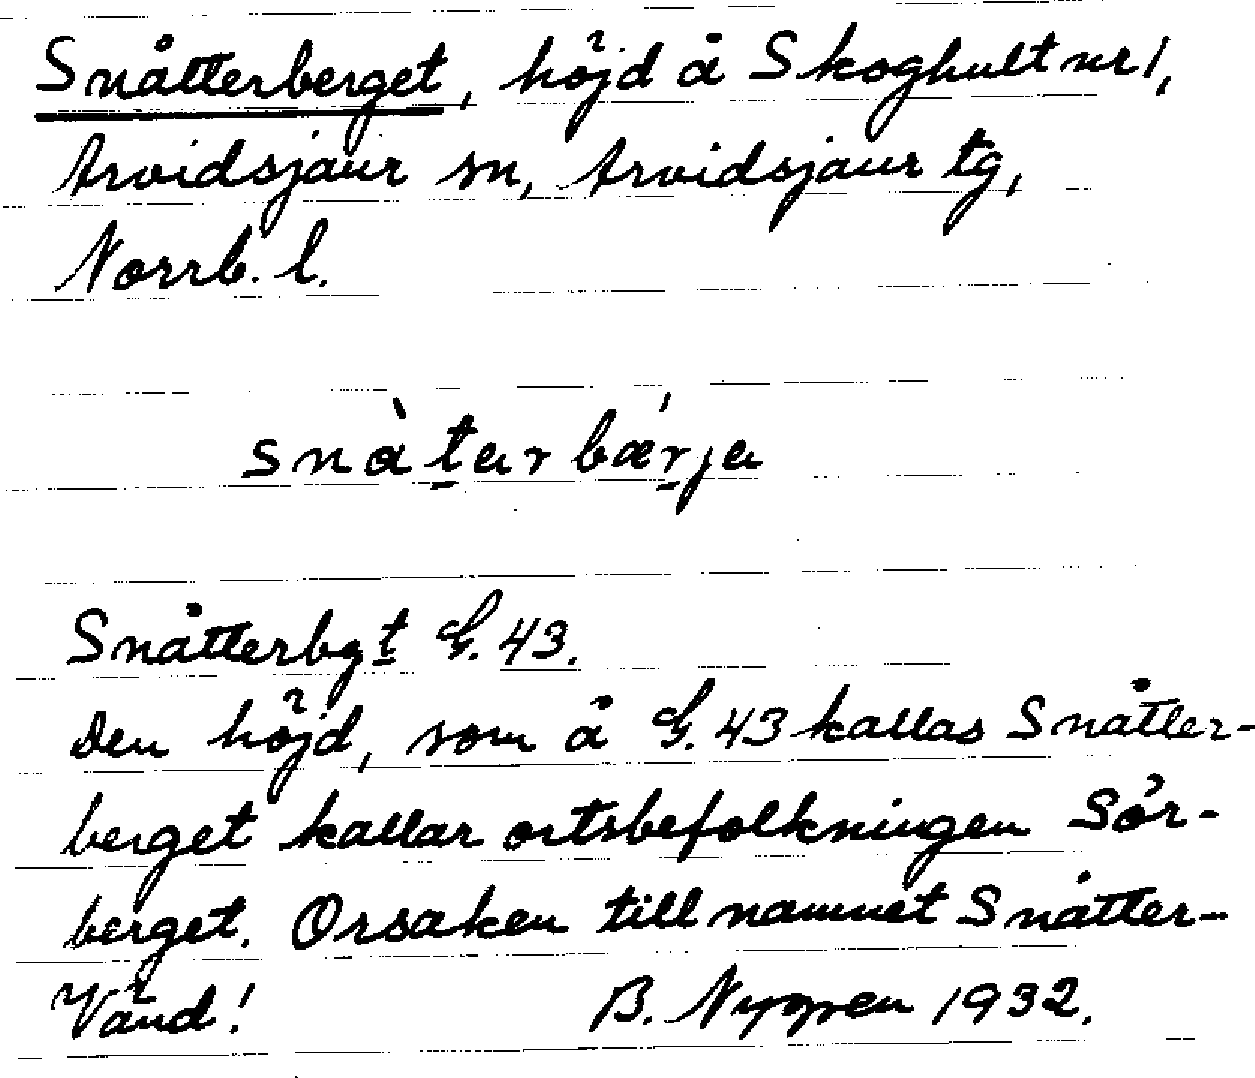 Snåtterberget, höjd å Skoghult nr 1,
Arvidsjaur sn, Arvidsjaur tg,
Norrb. l.
snàtarbærja
Snåtterbgt G. 43.
Den höjd, som å G. 43 kallas Snåtter-
berget kallar ortsbefolkningen Sör-
berget. Orsaken till namnet Snåtter-
Vänd! B. Nygren 1932.